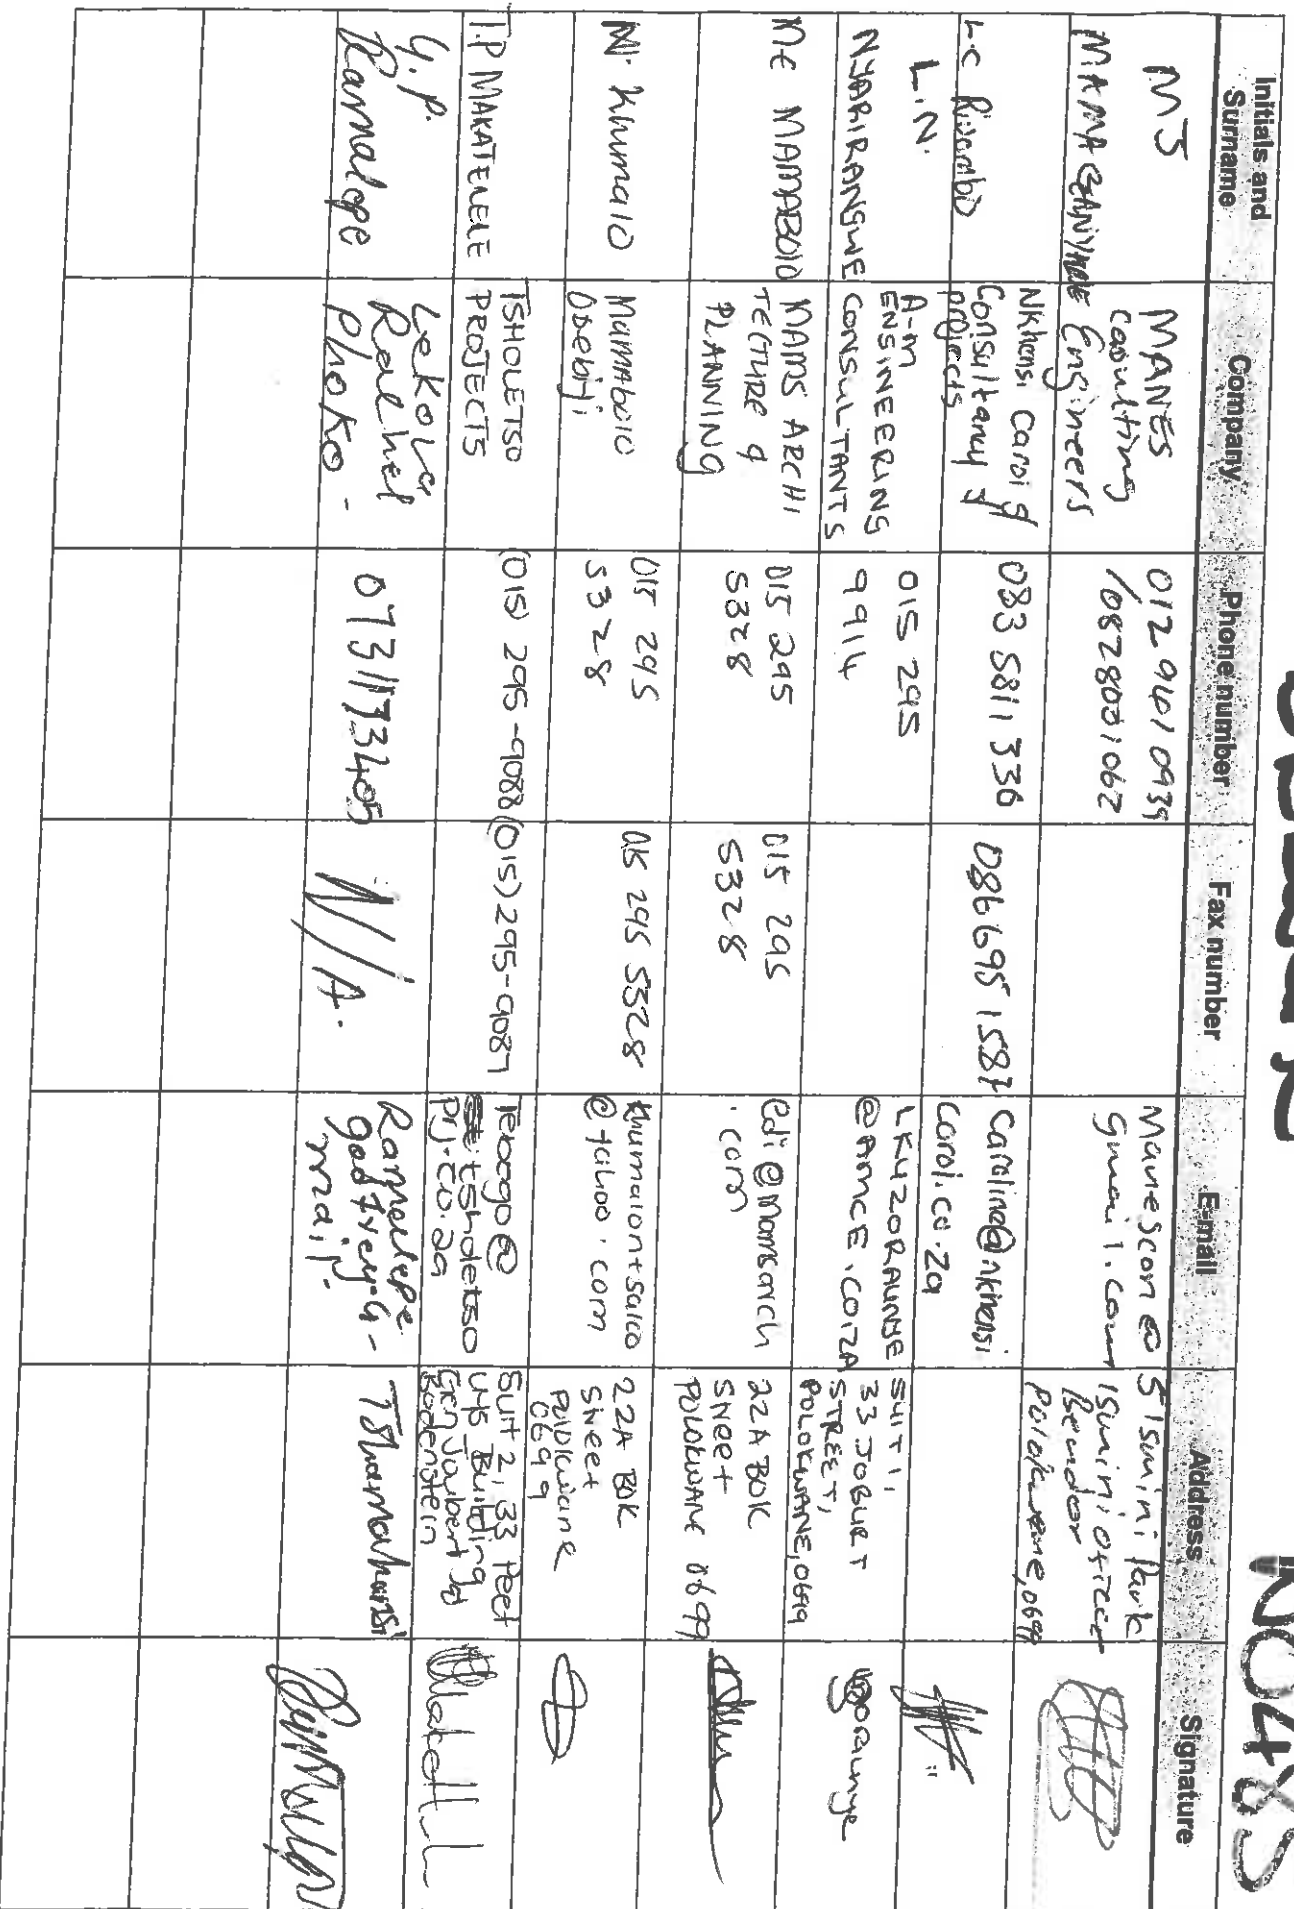 Initials and Surname
Company
Phone number
Fax number
E-mail
Address
Signature
MJ
MAMAGANYANE
MANES
Consulting
Engineers
012 940 0939
/0828001062
Manescon@
gmail.com
5 Isumini Park
Isumini Offices
Bendor
Polokwane, 0699
L.C Rivombo
Nkhensi Carol
Consultancy &
projects
083 5811 336
086 695 1587
caroline@nkhensi
carol.co.za
L.N.
NYARIRANGWE
A-M
ENGINEERING
CONSULTANTS
015 295
9914
LKUZORAUNYE
@AMCE.CO.ZA
SUIT 1,
33 JOBURT
STREET,
POLOKWANE, 0699
ME MAMABOLO
MAMS ARCHI
TECTURE &
PLANNING
015 295
5328
015 295
5328
edi@mamsarch
.com
22A BOK
Street
POLOKWANE 0699
N. Khumalo
Mamabolo
015 295
5328
015 295 5328
khumalontsako
@yahoo.com
22A BOK
Street
Polokwane
0699
T.P MAKATELELE
TSHOLETSO
PROJECTS
(015) 295-9088
(015) 295-9087
Tebogo@
tsholetso
prj.co.za
Suit 2, 33 Peet
Building
Gen Joubert
Bodenstein
G.P.
Ramalepe
Lekola
Rachel
Phoko-
0731173405
N/A.
Ramalepe.
godfrey.G-
mail.